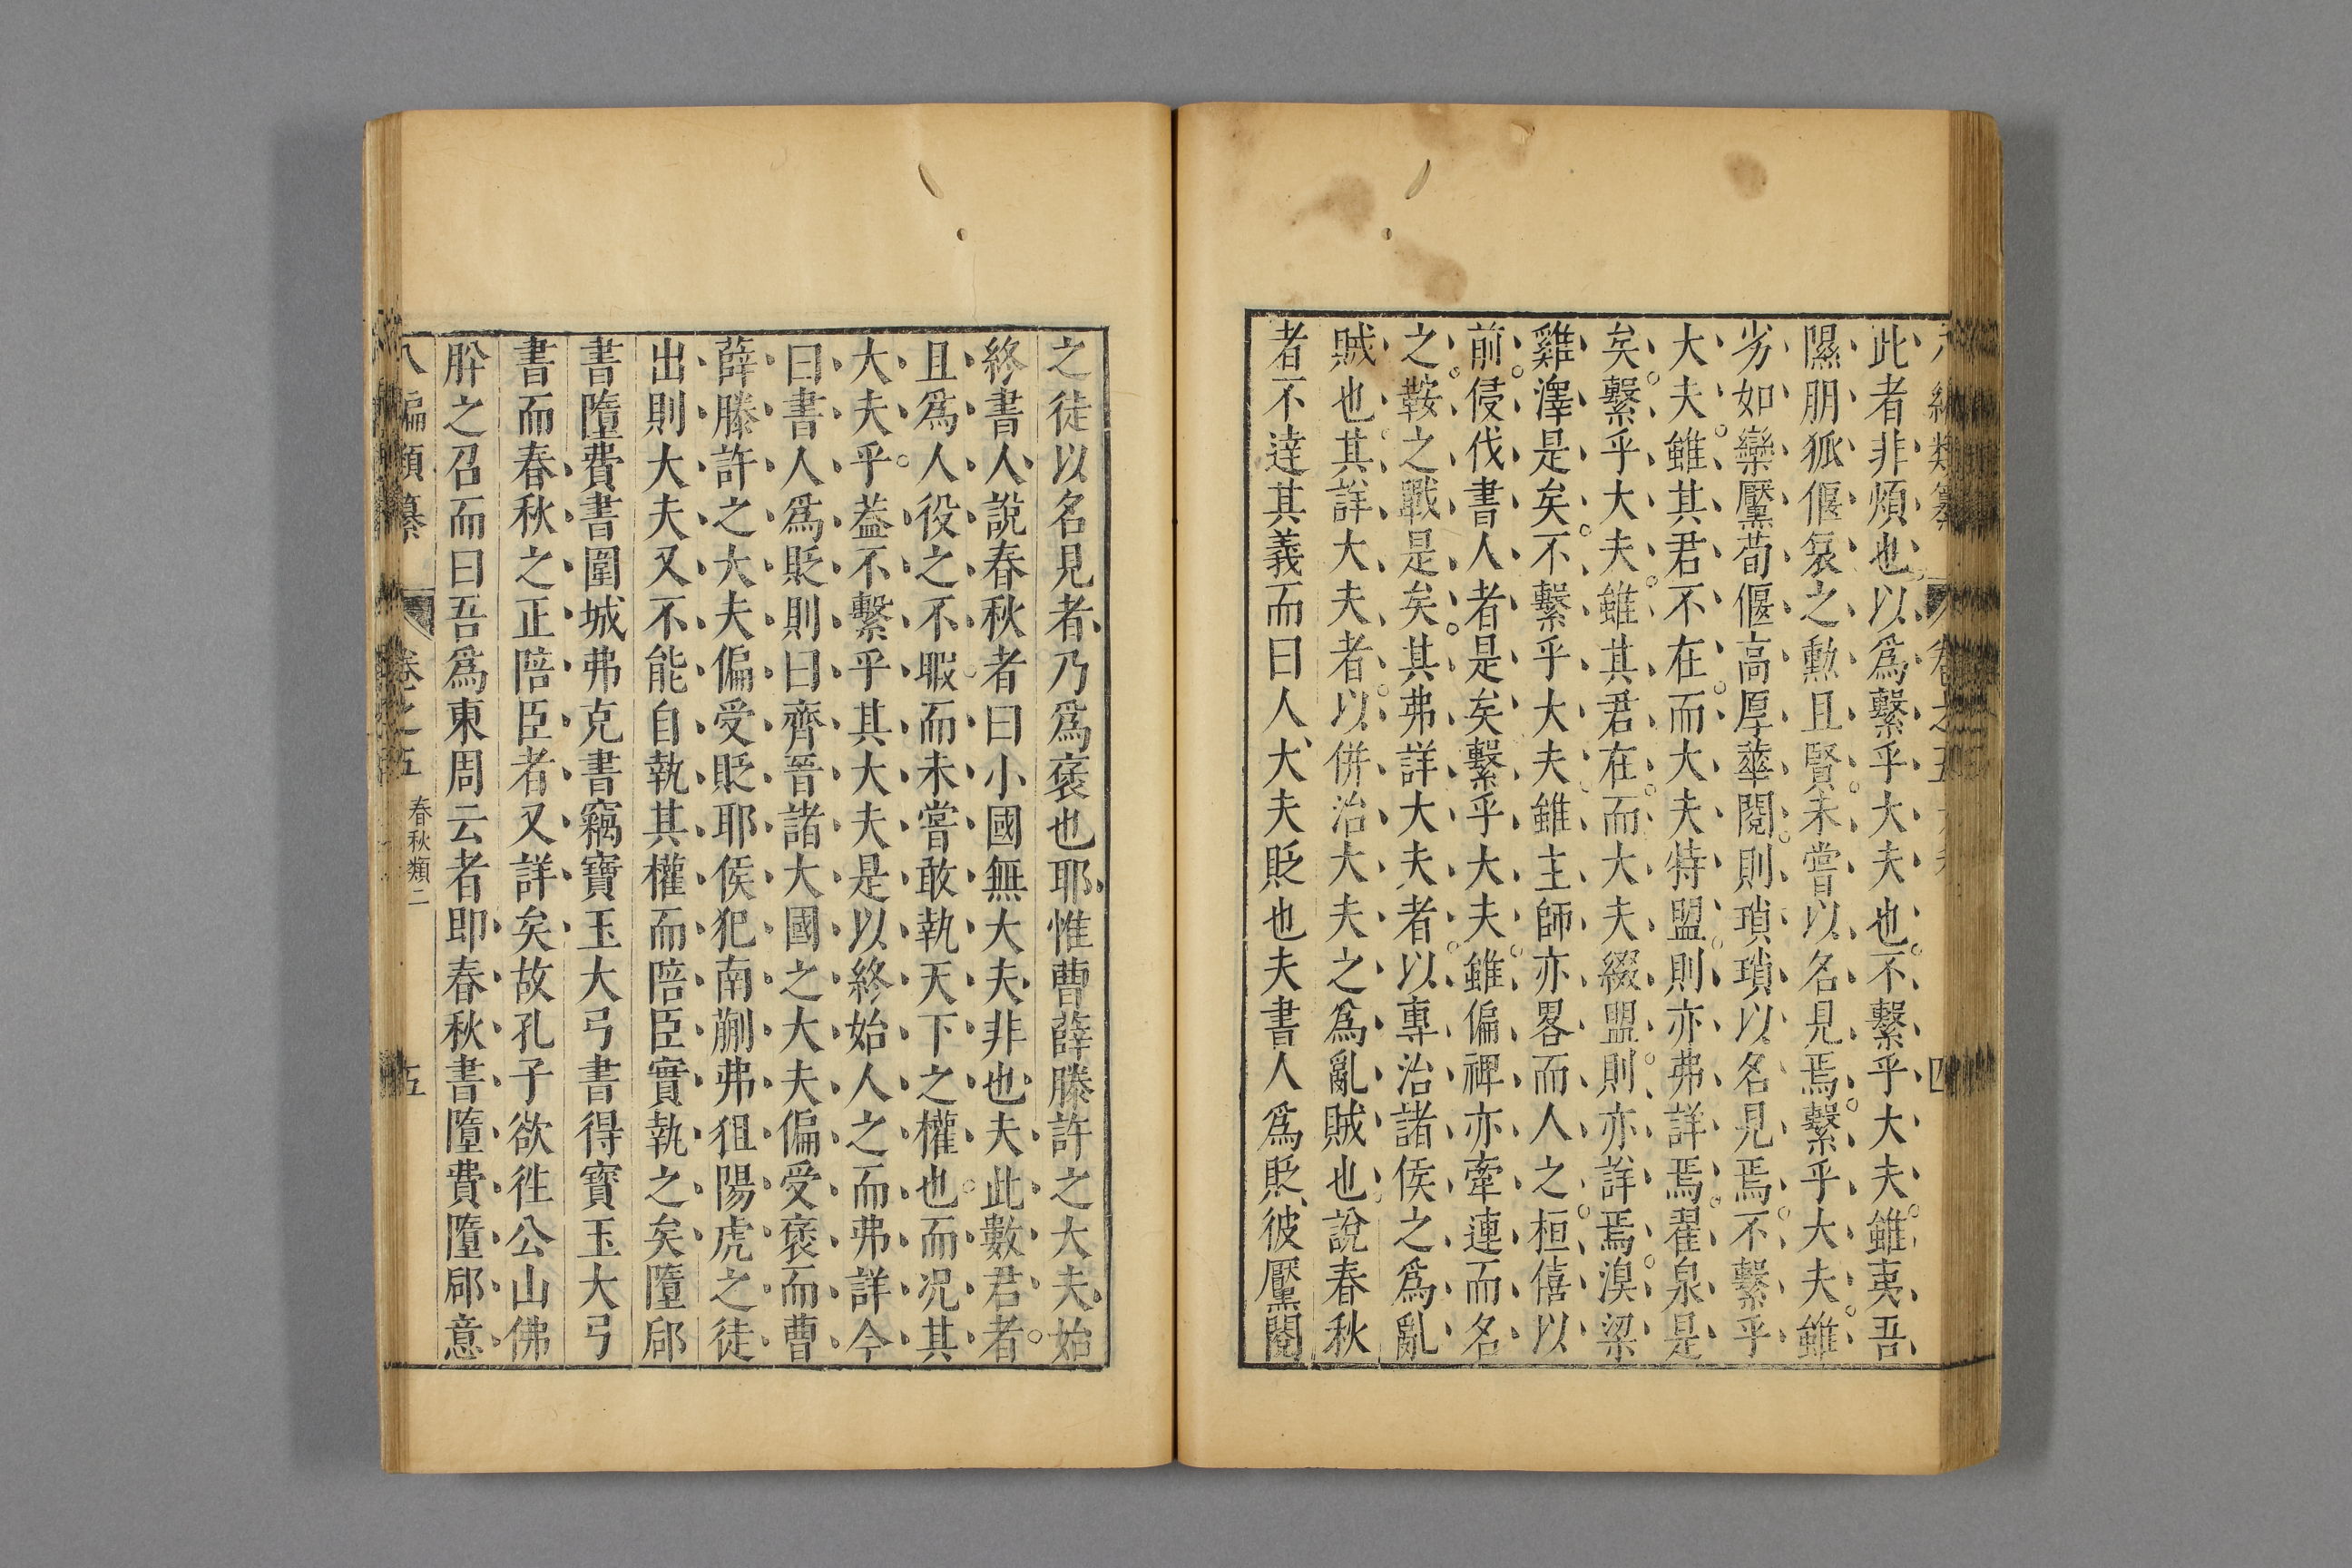 編類纂 卷之五 四
此者非煩也以爲繫乎大夫也不繫乎大夫雖夷吾
隰朋狐偃衰之勳且賢未嘗以名見焉繫乎大夫雖
劣如欒黶荀偃高厚華閱則瑣瑣以名見焉不繫乎
大夫雖其君不在而大夫特盟則亦弗詳焉翟泉是
矣繫乎大夫雖其君在而大夫綴盟則亦詳焉湨梁
雞澤是矣不繫乎大夫雖主師亦畧而人之桓僖以
前侵伐書人者是矣繫乎大夫雖偏裨亦牽連而名
之鞍之戰是矣其弗詳大夫者以專治諸侯之爲亂
賊也其詳大夫者以併治大夫之爲亂賊也說春秋
者不達其義而曰人大夫貶也夫書人爲貶彼黶閱
之徒以名見者乃爲褒也耶惟曹薛滕許之大夫始
終書人說春秋者曰小國無大夫非也夫此數君者
且爲人役之不暇而未嘗敢執天下之權也而况其
大夫乎葢不繫乎其大夫是以終始人之而弗詳今
曰書人爲貶則曰齊晉諸大國之大夫偏受褒而曹
薛滕許之大夫偏受貶耶侯犯南蒯弗狃陽虎之徒
出則大夫又不能自執其權而陪臣實執之矣隳郈
書隳費書圍城弗克書竊寶玉大弓書得寶玉大弓
書而春秋之正陪臣者又詳矣故孔子欲徃公山佛
肸之召而曰吾爲東周云者即春秋書隳費隳郈意
八編類纂 卷之五 春秋類二 五